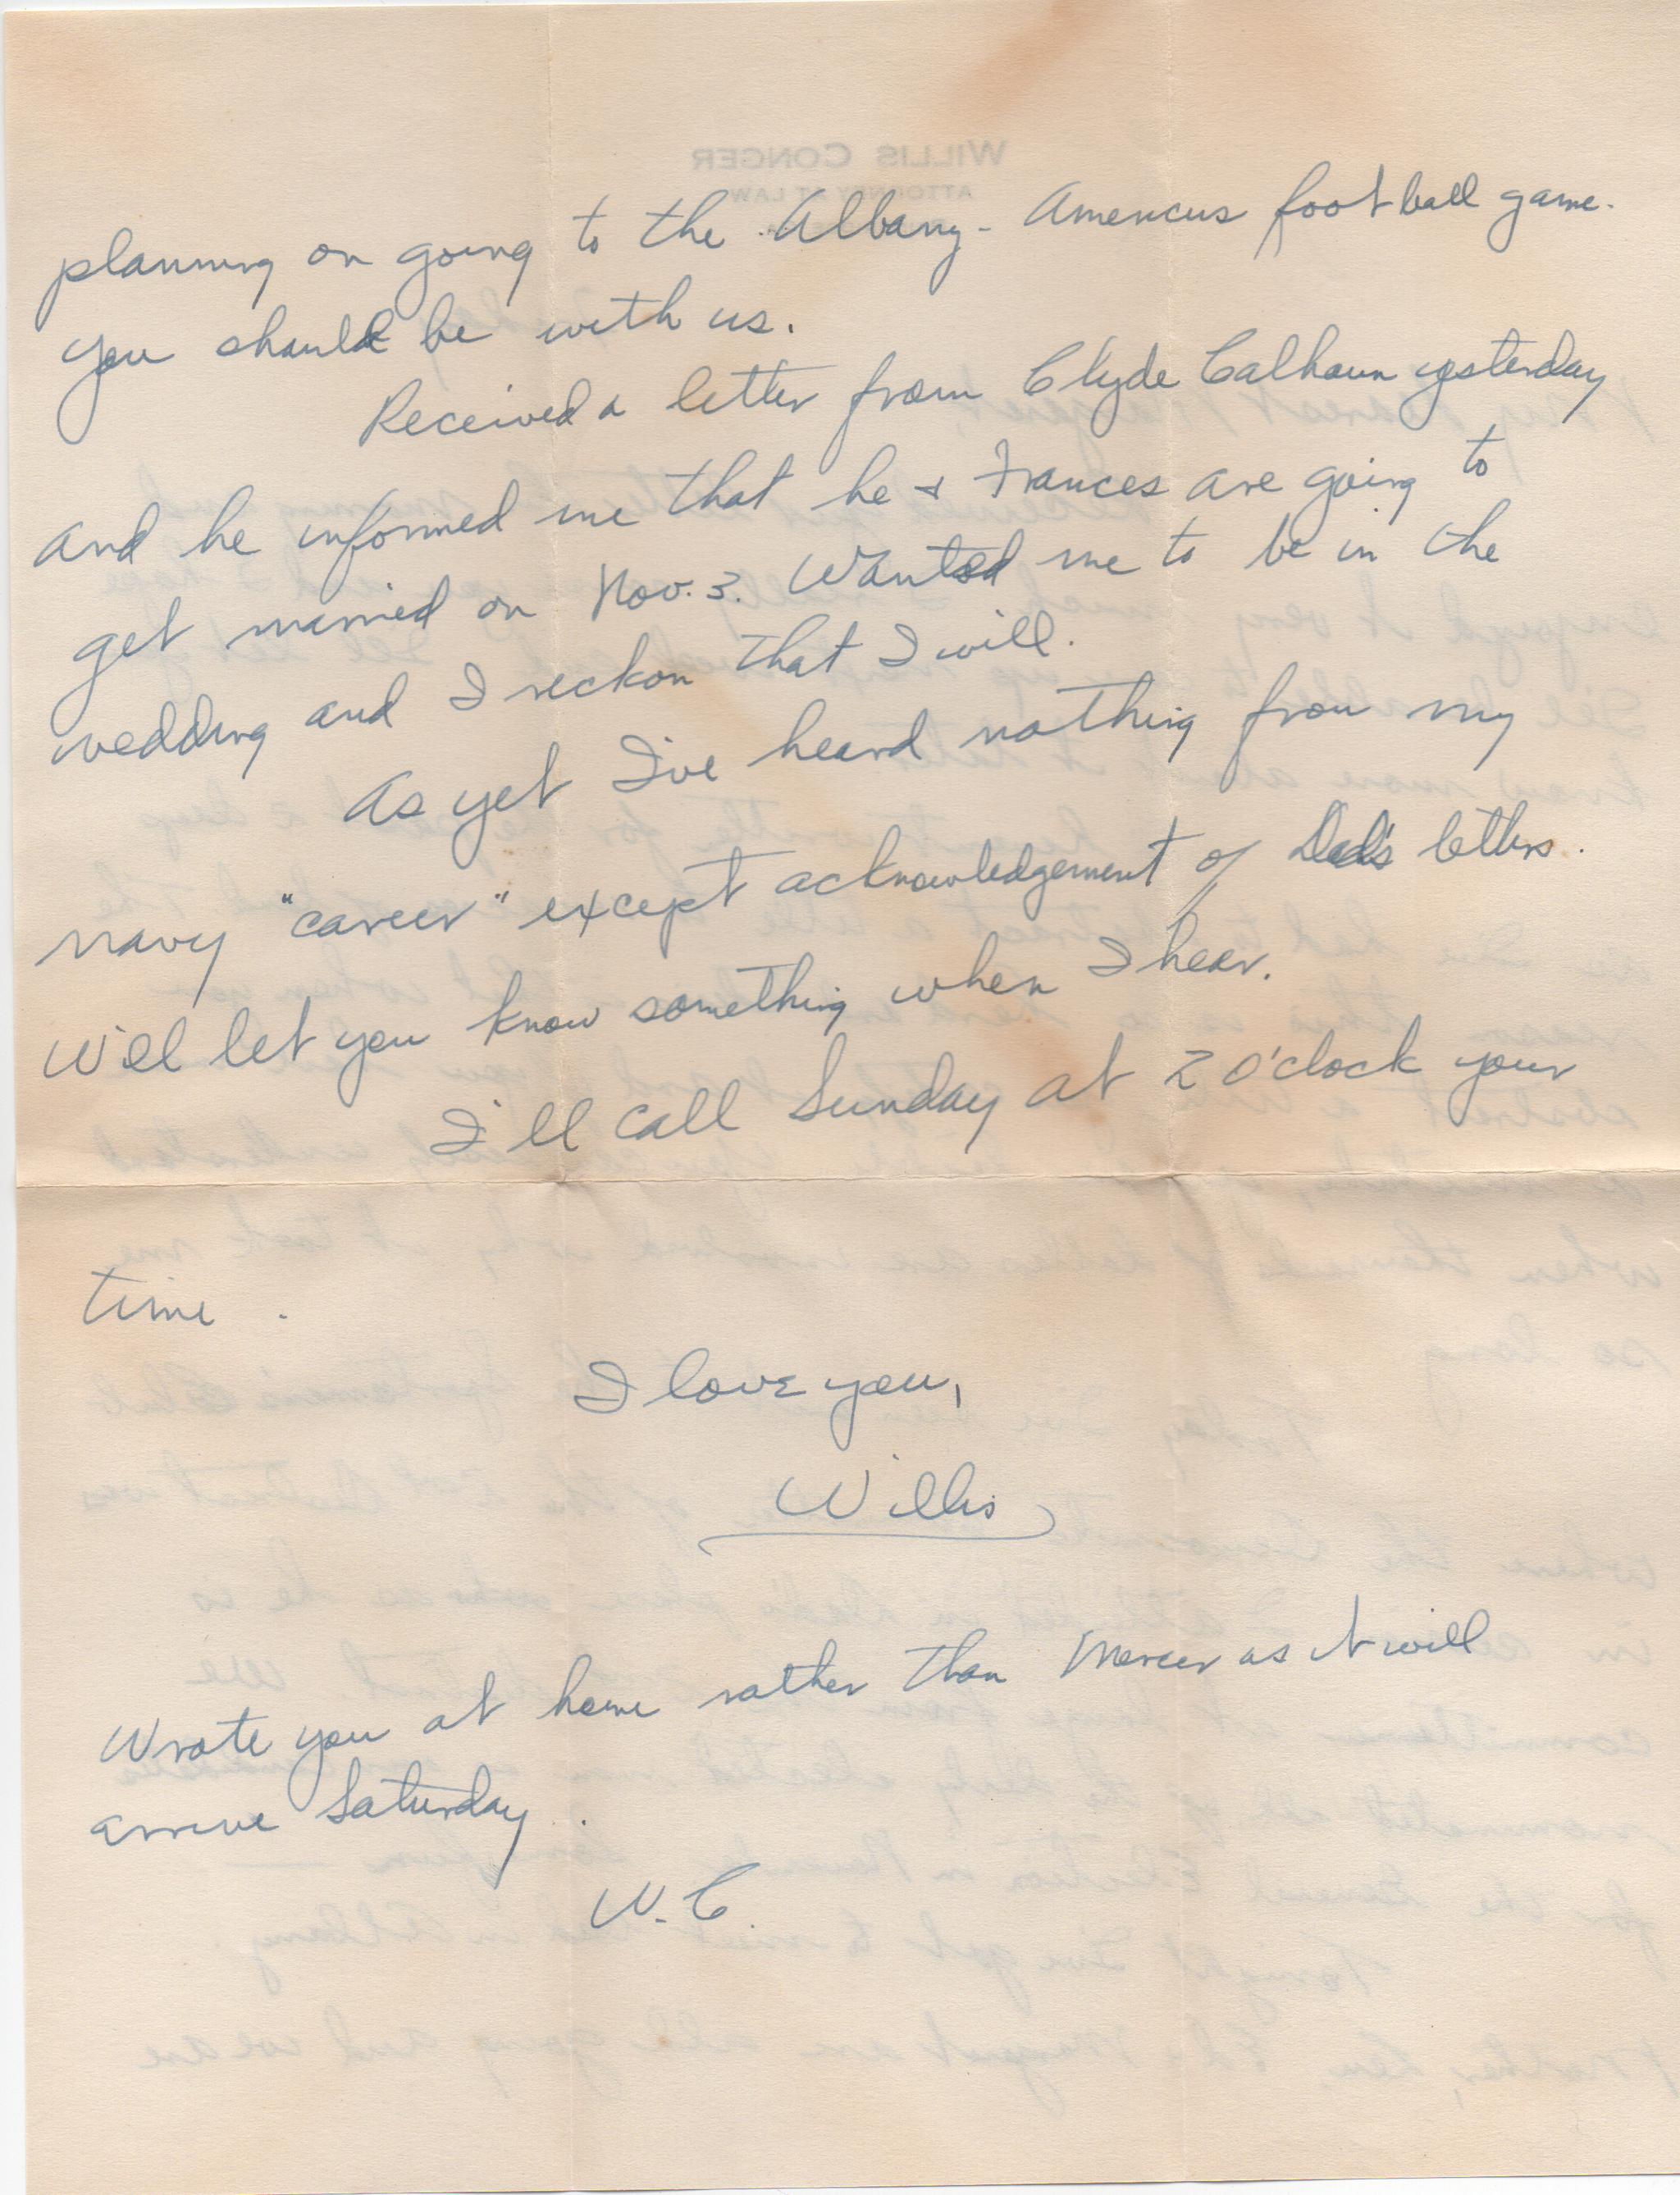 WILLIS CONGER
ATTORNEY AT LAW
planning on going to the Albany - Americus football game.
You should be with us.
Received a letter from Clyde Calhoun yesterday
and he informed me that he & Frances are going to
get married on Nov. 3. Wanted me to be in the
wedding and I reckon that I will.
As yet I've heard nothing from my
navy "career" except acknowledgement of Dad's letters.
Will let you know something when I hear.
I'll call Sunday at 2 O'clock your
time.
I love you,
Willis
Wrote you at home rather than Mercer as it will
arrive Saturday.
W.C.